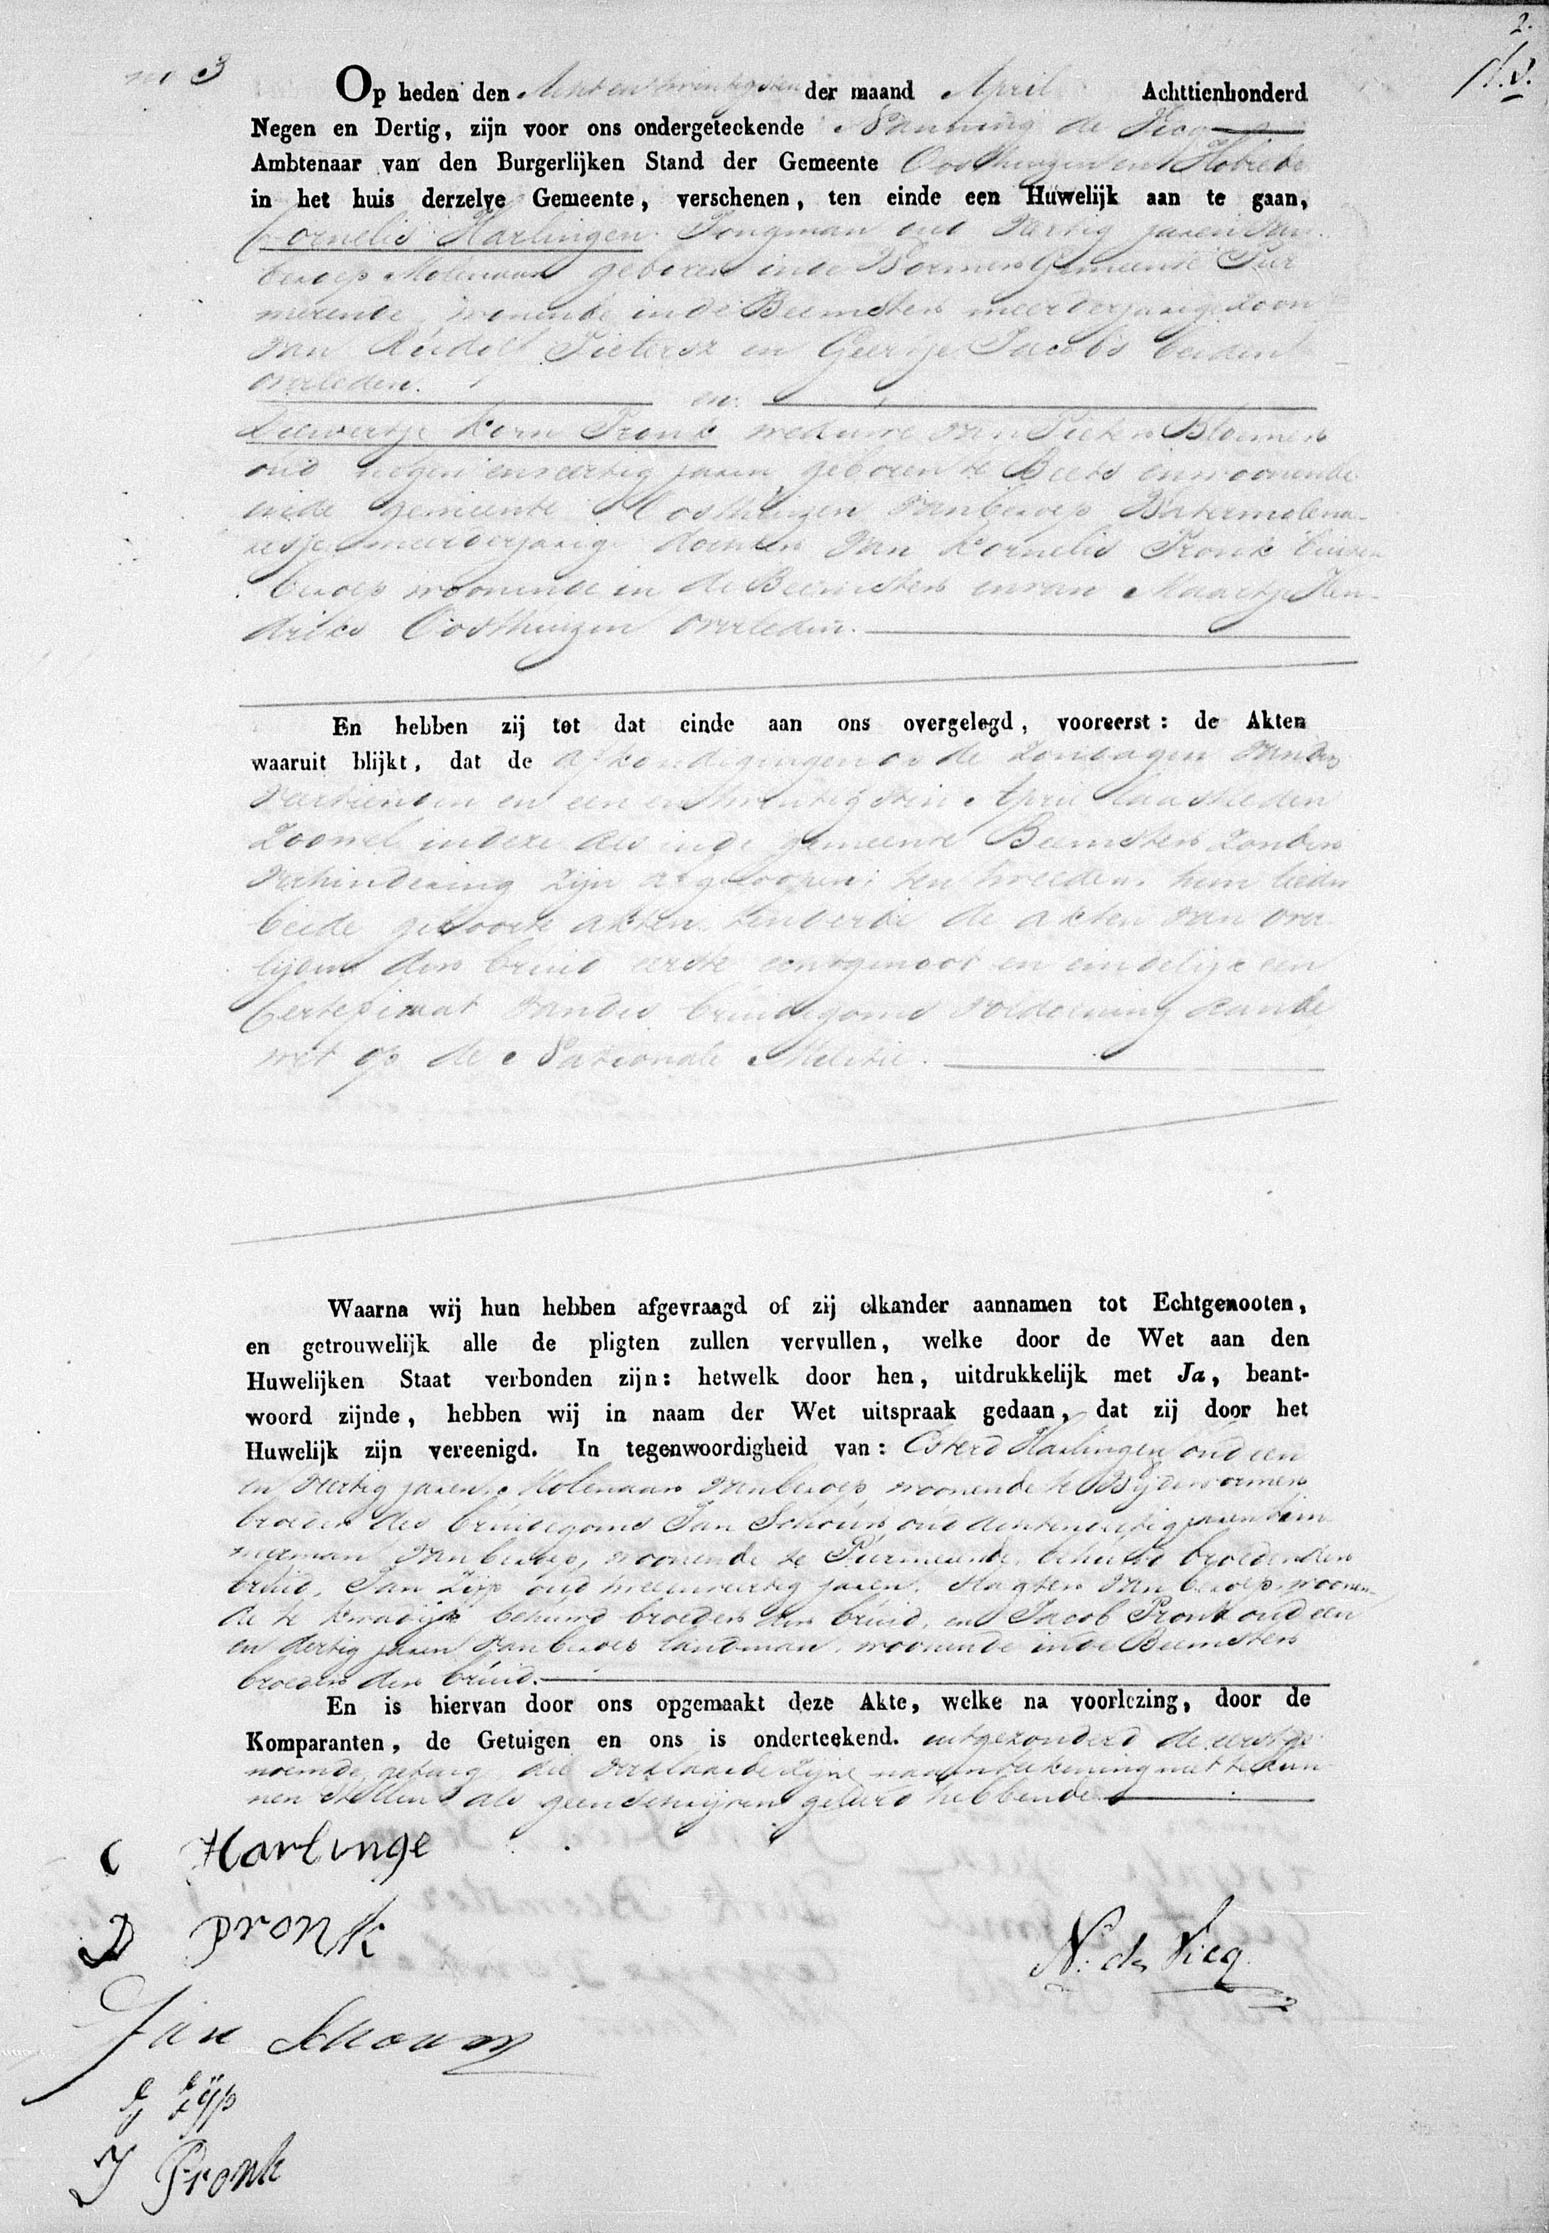 2.
no 3
Op heden den Acht en twintigsten der maand April Achttienhonderd
Negen en Dertig, zijn voor ons ondergeteekende Nanning de Vicq
Ambtenaar van den Burgerlijken Stand der Gemeente Oosthuizen en Hobrede
in het huis derzelve Gemeente, verschenen, ten einde een Huwelijk aan te gaan,
Cornelis Harlingen Jongman oud dertig jaren van
beroep Molenaar geboren in de Wormer Gemeente Pur
merende, wonende in de Beemster meerderjarige zoon
van Rudolf Pietersz en Geertje Jacobs beiden
overleden.
en
Diewertje Korn Pronk weduwe van Pieter Bloemer
oud negen en veertig jaren geboren te Beets en woonende
in de gemeente Oosthuizen van beroep Watermolena-
resse meerderjarige dochter van Kornelis Pronk buiten
beroep woonende in de Beemster en van Maartje Hen-
driks Oosthuizen overleden.
En hebben zij tot dat einde aan ons overgelegd, vooreerst: de Akten
waaruit blijkt, dat de afkondigingen op de Zondagen van den
veertienden en een en twintigsten April laastleden
Zoowel in deze als in de gemeente Beemster zonder
verhindering zijn afgeloopen; ten tweeden. hun lieder
beide geboorte akten. ten derde de akten van over
lijden der bruid eerste echtgenoot en eindelijk een
Certificaat van des bruidegoms voldoening aan de
wet op de Nationale Militie.
Waarna wij hun hebben afgevraagd of zij elkander aannamen tot Echtgenooten,
en getrouwelijk alle de pligten zullen vervullen, welke door de Wet aan den
Huwelijken Staat verbonden zijn: hetwelk door hen, uitdrukkelijk met Ja, beant-
woord zijnde, hebben wij in naam der Wet uitspraak gedaan, dat zij door het
Huwelijk zijn vereenigd. In tegenwoordigheid van: Harlingen oud een
en veertig jaren. Molenaar van beroep woonende te Wijdewormer
broeder des bruidegoms Jan Schoun, oud acht en vijftig jaren tim
merman van beroep, woonende te Purmerende, behuwd broeder der
bruid, Jan Zijp oud twee en veertig jaren. slagter van beroep woonen-
de te Kwadijk behuwd broeder der bruid, en Jacob Pronk oud een
en dertig jaren van beroep landman, woonende in de Beemster
broeder der bruid.
En is hiervan door ons opgemaakt deze Akte, welke na voorlezing, door de
Komparanten, de Getuigen en ons is onderteekend. uitgezonderd de eerst ge-
noemde getuig die verklaarde zijne naamtekening niet te kun
nen stellen als geen schrijven geleerd hebbende
C Harlinge
D pronk
N: de Vicq
Jan Schoun
Zijp
J Pronk